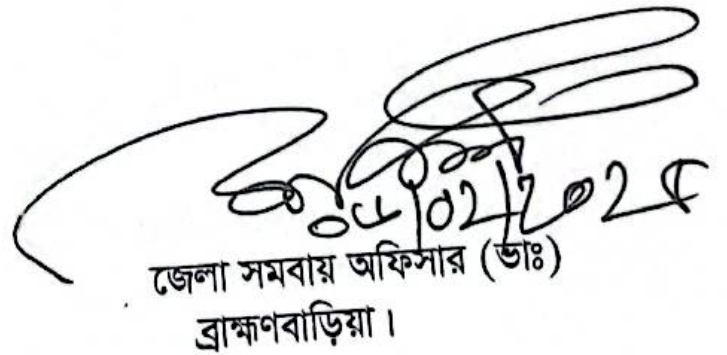 ০৫/০২/২০২৫
জেলা সমবায় অফিসার (ভাঃ)
ব্রাহ্মণবাড়িয়া।